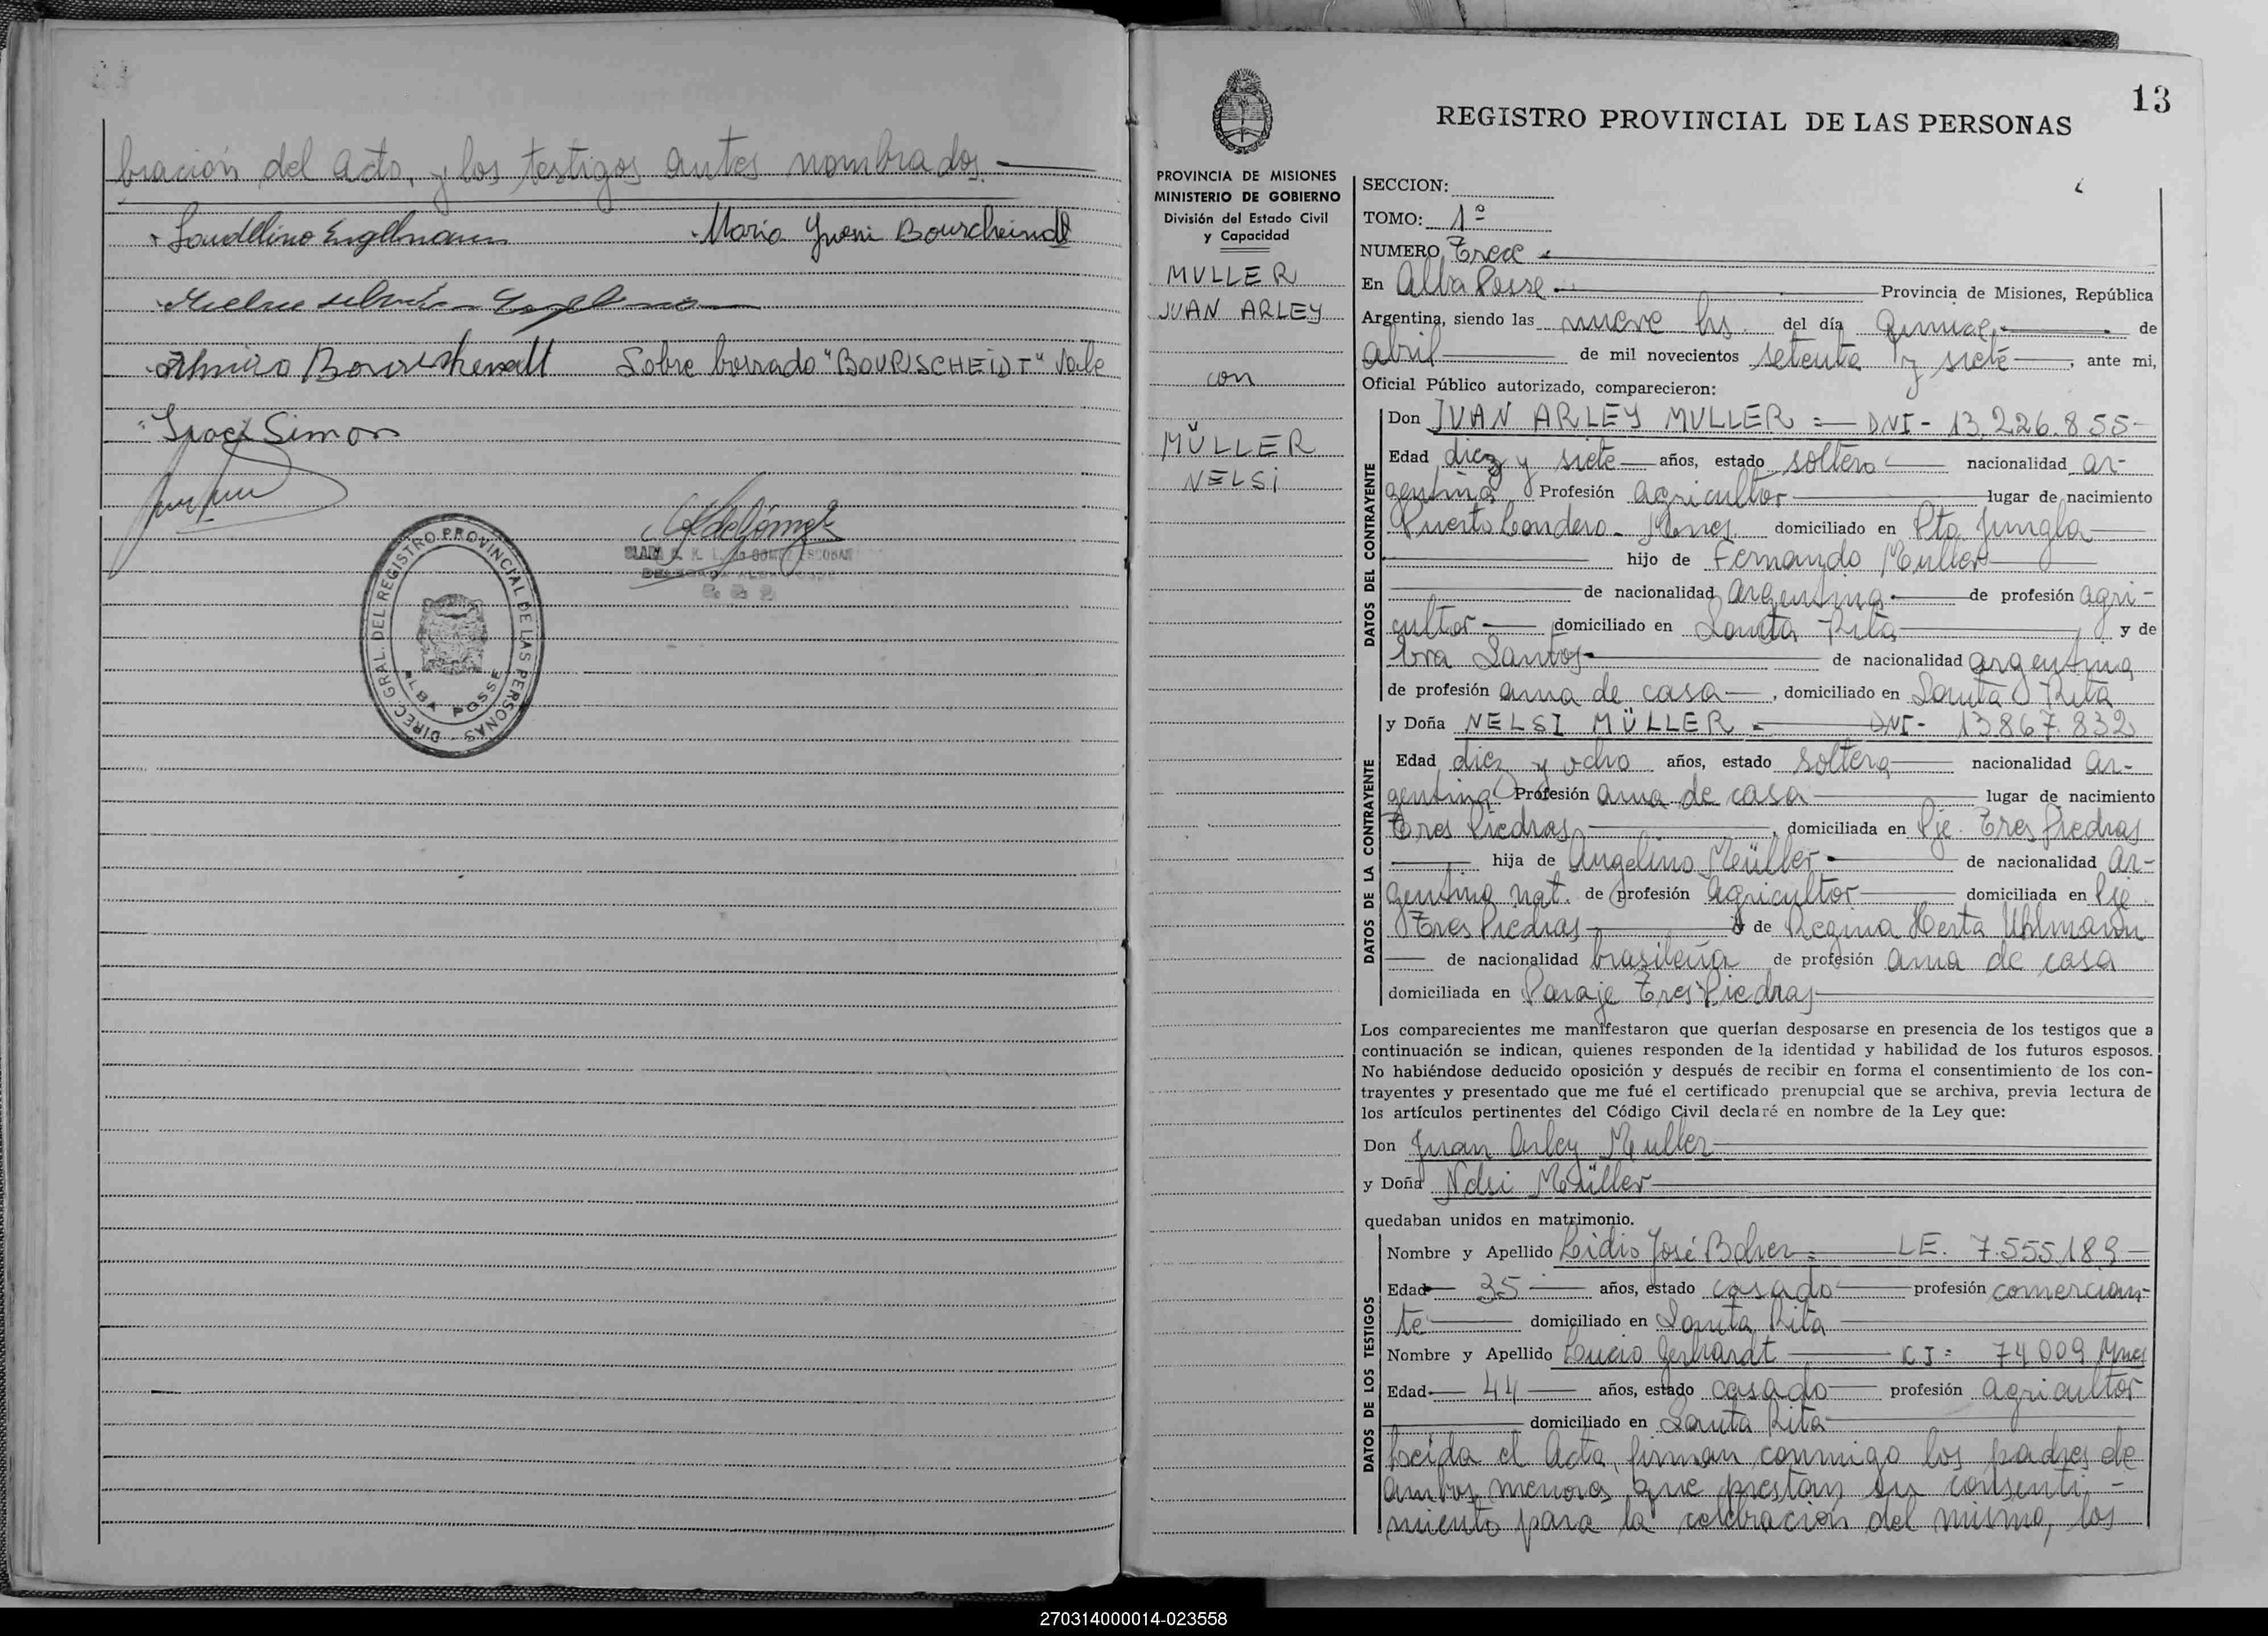 bración del acto, y los testigos antes nombrados.
Laudelino Engelmann
Maria Yveni Bourscheindt
Sobre borrado "BOURSCHEIDT" Vale
Simon
DIREC. GRAL. DEL REGISTRO PROVINCIAL DE LAS PERSONAS
ALBA POSSE
13
REGISTRO PROVINCIAL DE LAS PERSONAS
PROVINCIA DE MISIONES
MINISTERIO DE GOBIERNO
División del Estado Civil
y Capacidad
MULLER
JUAN ARLEY
con
MÜLLER
NELSI
SECCION:
TOMO: 1º
NUMERO Trece
En Alba Posse Provincia de Misiones, República
Argentina, siendo las nueve hs. del día Quince de
abril de mil novecientos setenta y siete, ante mi,
Oficial Público autorizado, comparecieron:
DATOS DEL CONTRAYENTE
Don JUAN ARLEY MULLER = DNI - 13.226.855-
Edad diez y siete años, estado soltero nacionalidad ar-
gentina Profesión agricultor lugar de nacimiento
Puerto Londero - Mnes. domiciliado en Pto. Jungla
hijo de Fernando Muller
de nacionalidad argentina de profesión agri-
cultor domiciliado en Santa Rita y de
Santos de nacionalidad argentina
de profesión ama de casa, domiciliado en Santa Rita
DATOS DE LA CONTRAYENTE
y Doña NELSI MÜLLER = DNI - 13867.832
Edad diez y ocho años, estado soltera nacionalidad ar-
gentina Profesión ama de casa lugar de nacimiento
Tres Piedras, domiciliada en Pje. Tres Piedras
hija de Angelino Müller de nacionalidad ar-
gentino nat. de profesión agricultor domiciliada en Pje.
Tres Piedras de Regina Herta Uhlmann
de nacionalidad brasileña de profesión ama de casa
domiciliada en Paraje Tres Piedras
Los comparecientes me manifestaron que querían desposarse en presencia de los testigos que a
continuación se indican, quienes responden de la identidad y habilidad de los futuros esposos.
No habiéndose deducido oposición y después de recibir en forma el consentimiento de los con-
trayentes y presentado que me fué el certificado prenupcial que se archiva, previa lectura de
los artículos pertinentes del Código Civil declaré en nombre de la Ley que:
Don Juan Arley Muller
y Doña Nelsi Müller
quedaban unidos en matrimonio.
DATOS DE LOS TESTIGOS
Nombre y Apellido Lidio José Boher = LE. 7.555.189
Edad 35 años, estado casado profesión comercian-
te domiciliado en Santa Rita
Nombre y Apellido Lucio Gerhardt C I = 74 009 Mnes
Edad 44 años, estado casado profesión agricultor
domiciliado en Santa Rita
Leída el Acta, firman conmigo los padres de
ambos menores que prestan su consenti-
miento para la celebración del mismo, los
270314000014-023558